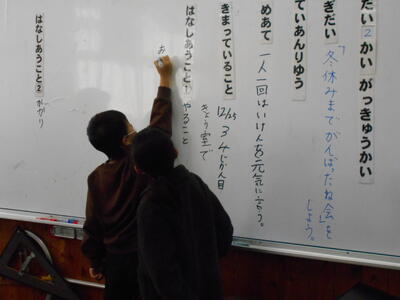 だい2かいがっきゅうかい
ぎだい
「冬休みまでがんばったね会」を
しよう。
ていあんりゆう
めあて
一人一回はいけんを元気に言う。
きまっていること
12/25
3 4じかん目
きょう室で
はなしあうこと1 やること
お
はなしあうこと2
かかり